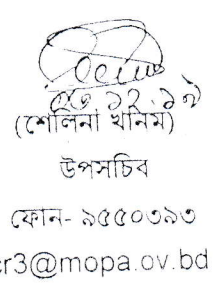 (শেলিনা খানম)
উপসচিব
ফোন- ৯৫৫০৩৯৩
cr3@mopa.ov.bd